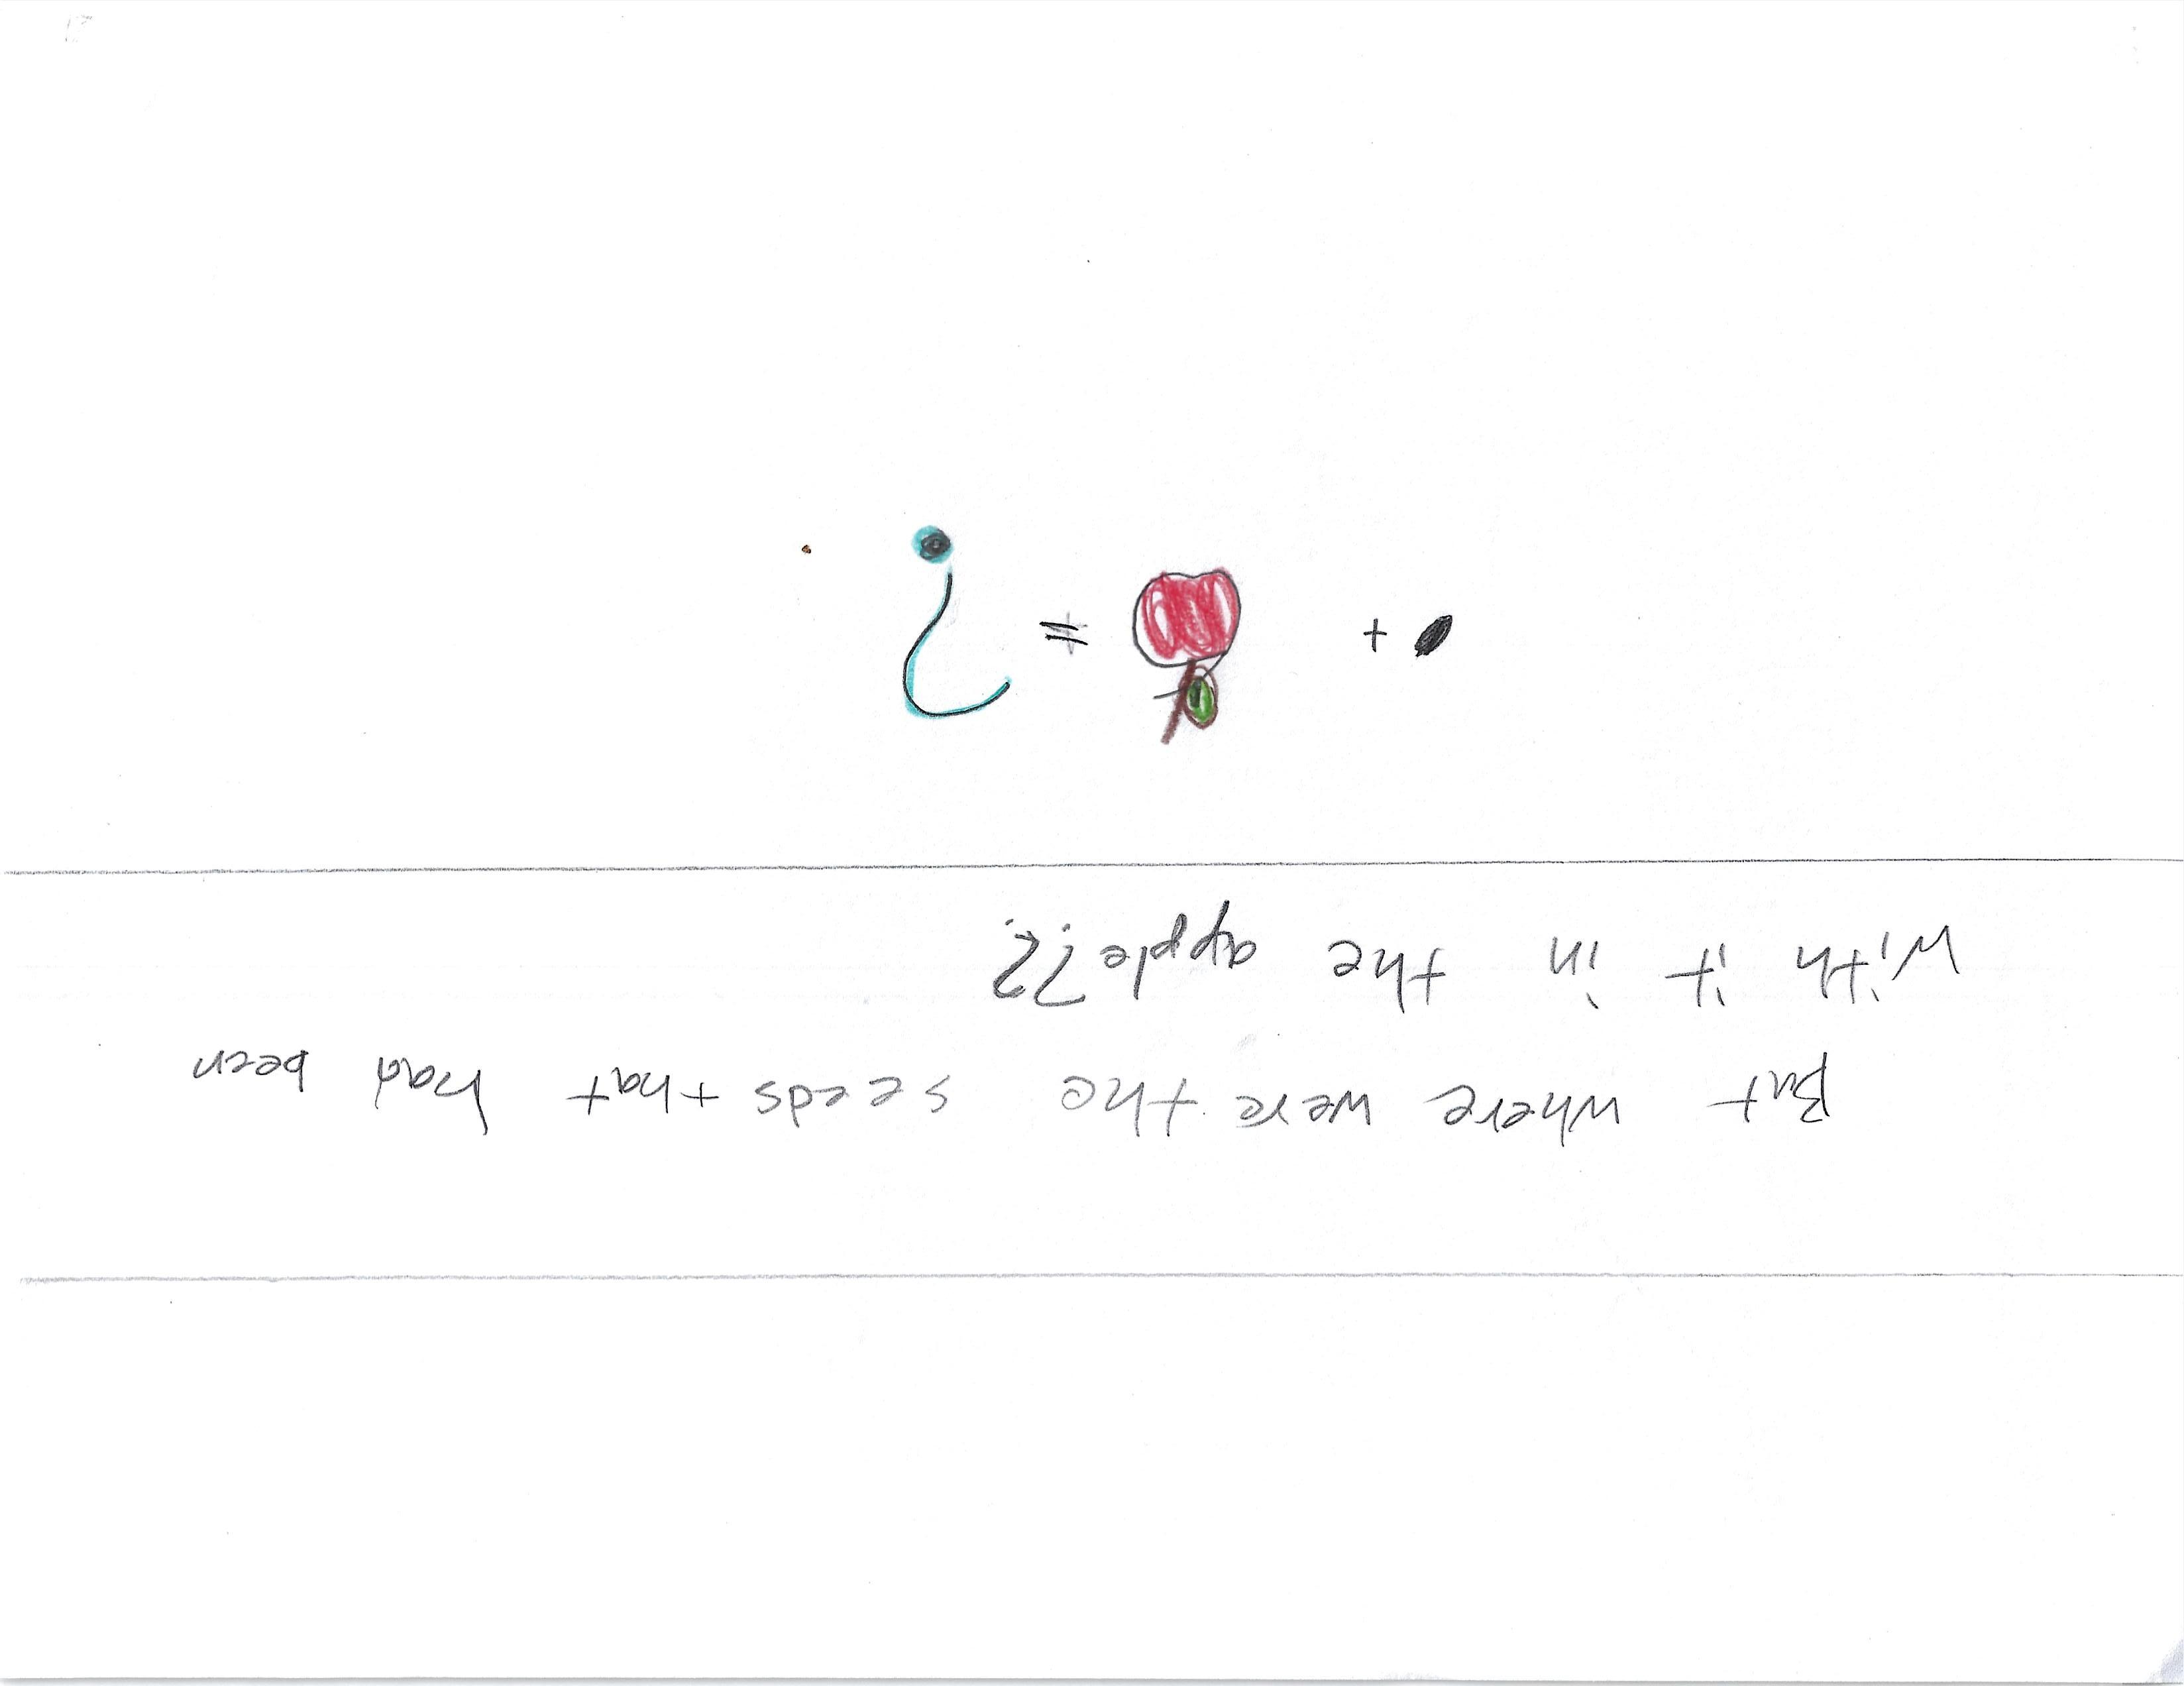 But where were the seeds that had been
with it in the apple??
+ = ?